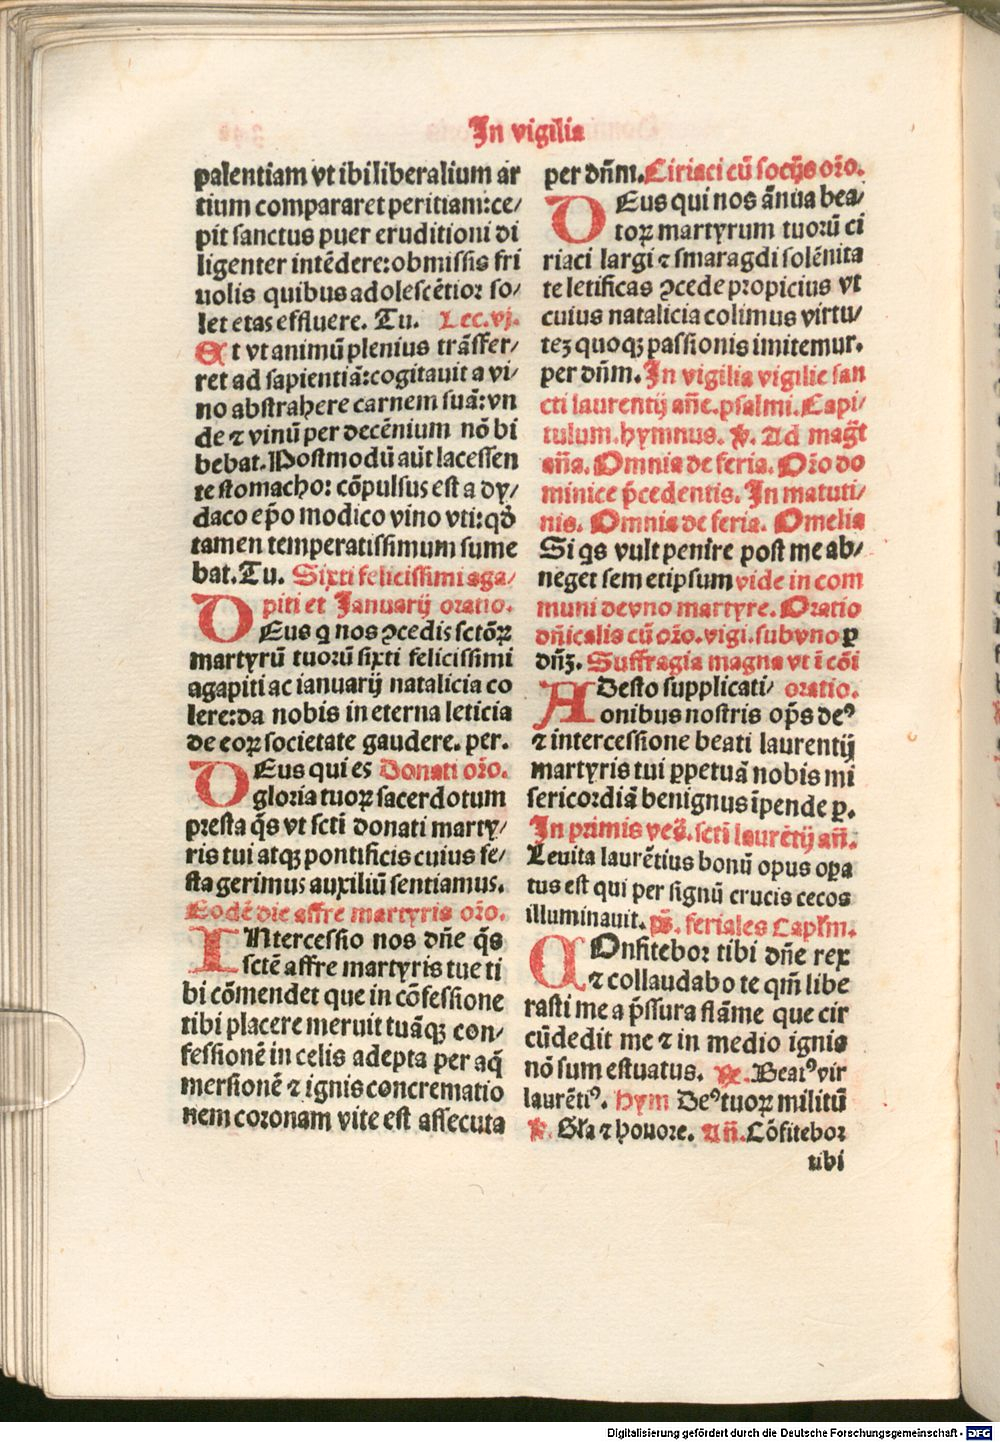 In vigilia
palentiam vt ibi liberalium ar
tium compararet peritiam:ce/
pit sanctus puer eruditioni di
ligenter intēdere:obmissis fri
uolis quibus adolescētior so/
let etas effluere. Tu. Lec.vj.
Et vt animū plenius trāsfer/
ret ad sapientiā:cogitauit a vi/
no abstrahere carnem suā:vn
de ⁊ vinū per decēnium nō bi
bebat.Postmodū aūt lacessen
te stomacho: cōpulsus est a dy/
daco ep̄o modico vino vti:qđ
tamen temperatissimum sume
bat.Tu. Sixti felicissimi aga/
piti et Januarij oratio.
DEus q nos ꝯcedis sctōꝝ
martyrū tuorū sixti felicissimi
agapiti ac ianuarij natalicia co
lere:da nobis in eterna leticia
de eoꝝ societate gaudere. per.
DEus qui es Donati or̄o.
gloria tuoꝝ sacerdotum
presta q̄s vt sctī donati marty/
ris tui atqꝫ pontificis cuius fe/
sta gerimus auxiliū sentiamus.
Eodē die affre martyris or̄o.
INtercessio nos dn̄e q̄s
sctē affre martyris tue ti
bi cōmendet que in cōfessione
tibi placere meruit tuāqꝫ con/
fessionē in celis adepta per aq̄
mersionē ⁊ ignis concrematio
nem coronam vite est assecuta
per dn̄m.Ciriaci cū socijs or̄o.
DEus qui nos ānua bea/
toꝝ martyrum tuorū ci
riaci largi ⁊ smaragdi solēnita
te letificas ꝯcede propicius vt
cuius natalicia colimus virtu/
teꝫ quoqꝫ passionis imitemur.
per dn̄m.In vigilia vigilie san
cti laurentij an̄e.psalmi.Capi/
tulum.hymnus. ℣. Ad magt̄
an̄a.Omnia de feria. Or̄o do
minice p̄cedentis. In matuti/
nis. Omnia de feria. Omelia
Si qs vult penire post me ab/
neget semetipsum vide in com
muni de vno martyre. Oratio
dn̄icalis cū or̄o.vigi.sub vno ꝑ
dn̄ꝫ. Suffragia magna vt ī cōi
ADesto supplicati/ oratio.
onibus nostris op̄s deꝰ
⁊ intercessione beati laurentij
martyris tui ꝑpetuā nobis mi
sericordiā benignus īpende ꝑ.
In primis veṡ. sctī laurētij an̄.
Leuita laurētius bonū opus oꝑa
tus est qui per signū crucis cecos
illuminauit. ps̄. feriales Caplm̄.
COnfitebor tibi dn̄e rex
⁊ collaudabo te qm̄ libe
rasti me a p̄ssura flāme que cir
cūdedit me ⁊ in medio ignis
nō sum estuatus. ℟. Beatꝰ vir
laurētiꝰ. Hym Deꝰ tuoꝝ militū
℣. Gl̄a ⁊ honore. An̄.Cōfitebor
tibi
Digitalisierung gefördert durch die Deutsche Forschungsgemeinschaft - DFG